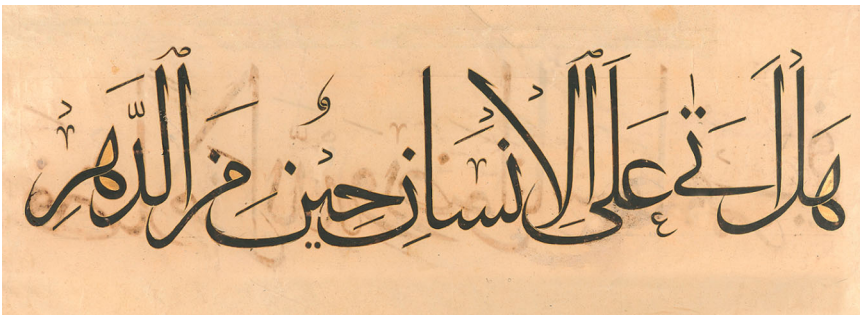 هَلْ اَتٰى عَلَى الْاِنْسَانِ حِينٌ مِنَ الدَّهْرِ